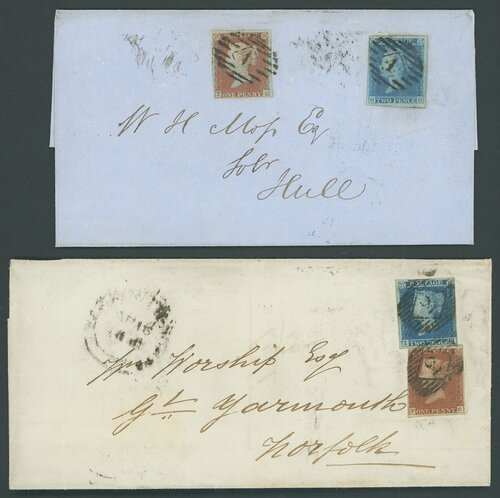 ONE PENNY
TWO PENCE
W H Moſs Esq
Solr
Hull
POSTAGE
TWO PENCE
ONE PENNY
Wm Worship Esq
Gt. Yarmouth
Norfolk